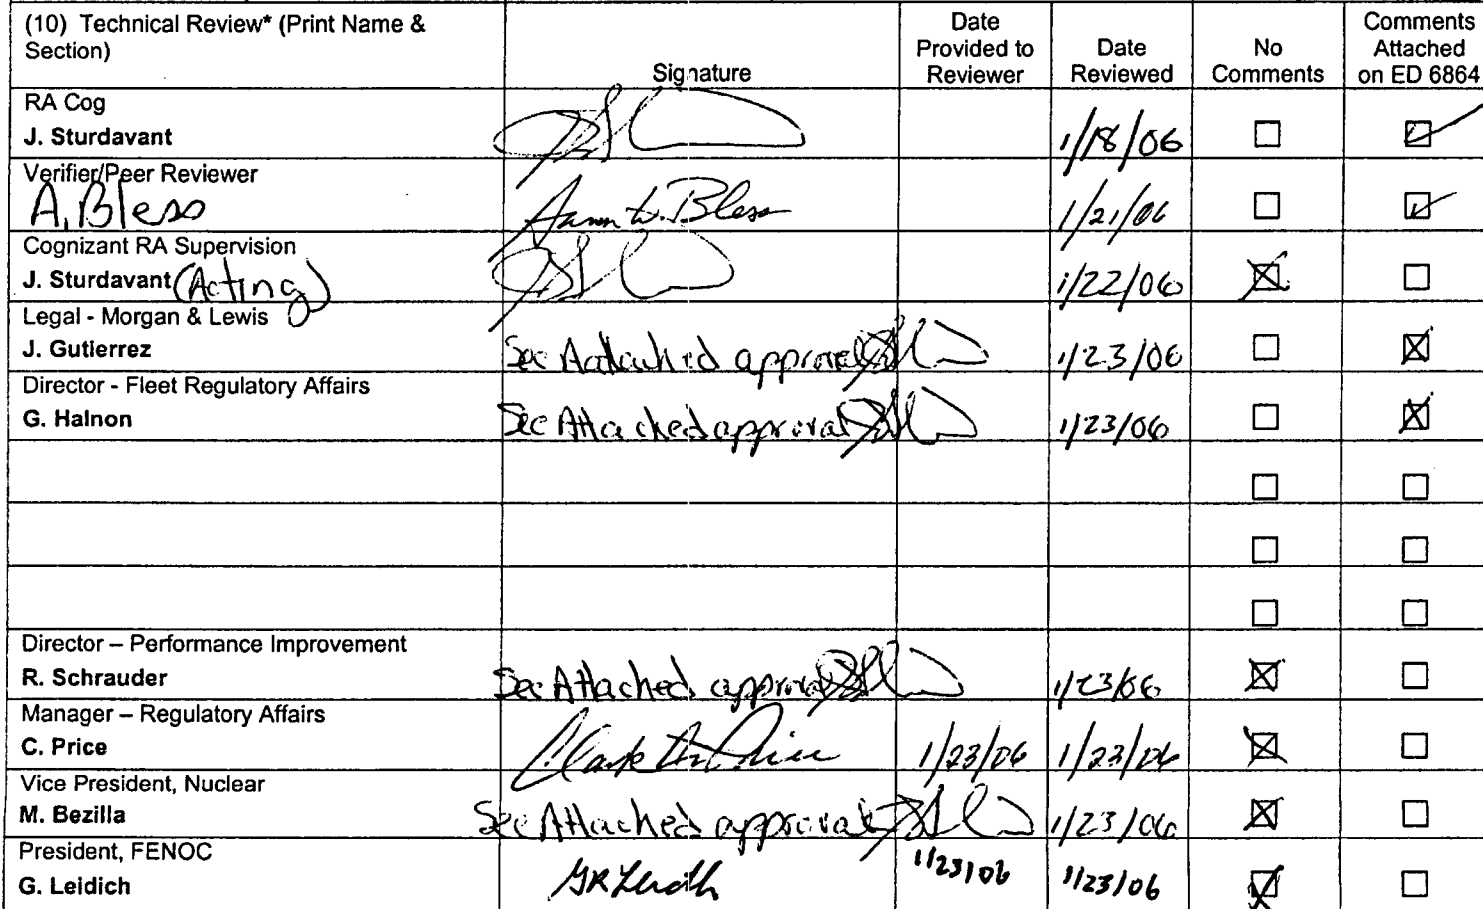 (10) Technical Review* (Print Name &
Section)
Signature
Date
Provided to
Reviewer
Date
Reviewed
No
Comments
Comments
Attached
on ED 6864
RA Cog
J. Sturdavant
1/18/06
Verifier/Peer Reviewer
A. Bless
Aaron W. Bless
1/21/06
Cognizant RA Supervision
J. Sturdavant (Acting)
1/22/06
Legal - Morgan & Lewis
J. Gutierrez
See Aattached approval
1/23/06
Director - Fleet Regulatory Affairs
G. Halnon
See Attached approval
1/23/06
Director – Performance Improvement
R. Schrauder
See Attached approval
1/23/06
Manager – Regulatory Affairs
C. Price
1/23/06
1/23/06
Vice President, Nuclear
M. Bezilla
See Attached approval
1/23/06
President, FENOC
G. Leidich
1/23/06
1/23/06